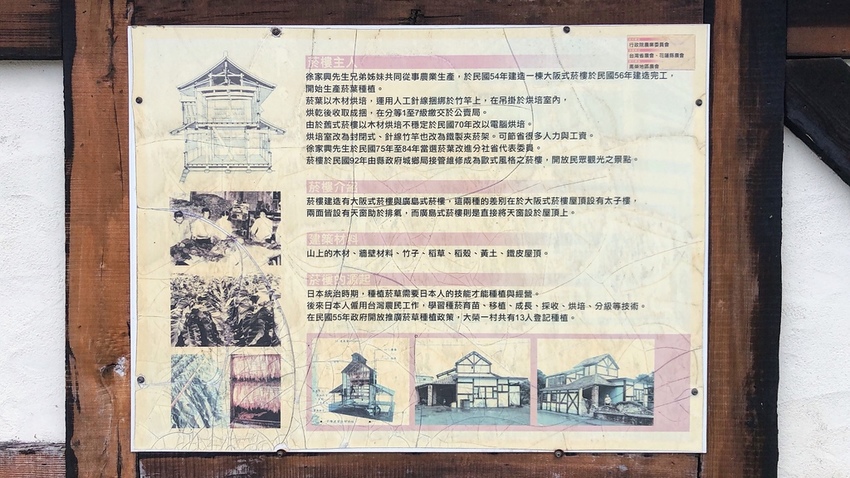 行政院農業委員會
台灣省農會、花蓮縣農會
鳳榮地區農會
菸樓主人
徐家興先生兄弟姊妹共同從事農業生產，於民國54年建造一棟大阪式菸樓於民國56年建造完工，
開始生產菸葉種植。
菸葉以木材烘培，運用人工針線捆綁於竹竿上，在吊掛於烘培室內，
烘乾後收取成捆，在分等1至7級繳交於公賣局。
由於舊式菸樓以木材烘培不穩定於民國70年改以電腦烘培。
烘培室改為封閉式、針線竹竿也改為鐵製夾菸架。可節省很多人力與工資。
徐家興先生於民國75年至84年當選菸葉改進分社省代表委員。
菸樓於民國92年由縣政府城鄉局接管維修成為歐式風格之菸樓，開放民眾觀光之景點。
菸樓介紹
菸樓建造有大阪式菸樓與廣島式菸樓，這兩種的差別在於大阪式菸樓屋頂設有太子樓，
兩面皆設有天窗助於排氣，而廣島式菸樓則是直接將天窗設於屋頂上。
建築材料
山上的木材、牆壁材料、竹子、稻草、稻殼、黃土、鐵皮屋頂。
日本統治時期，種植菸草需要日本人的技能才能種植與經營。
後來日本人僱用台灣農民工作，學習種菸育苗、移植、成長、採收、烘培、分級等技術。
在民國55年政府開放推廣菸草種植政策，大榮一村共有13人登記種植。